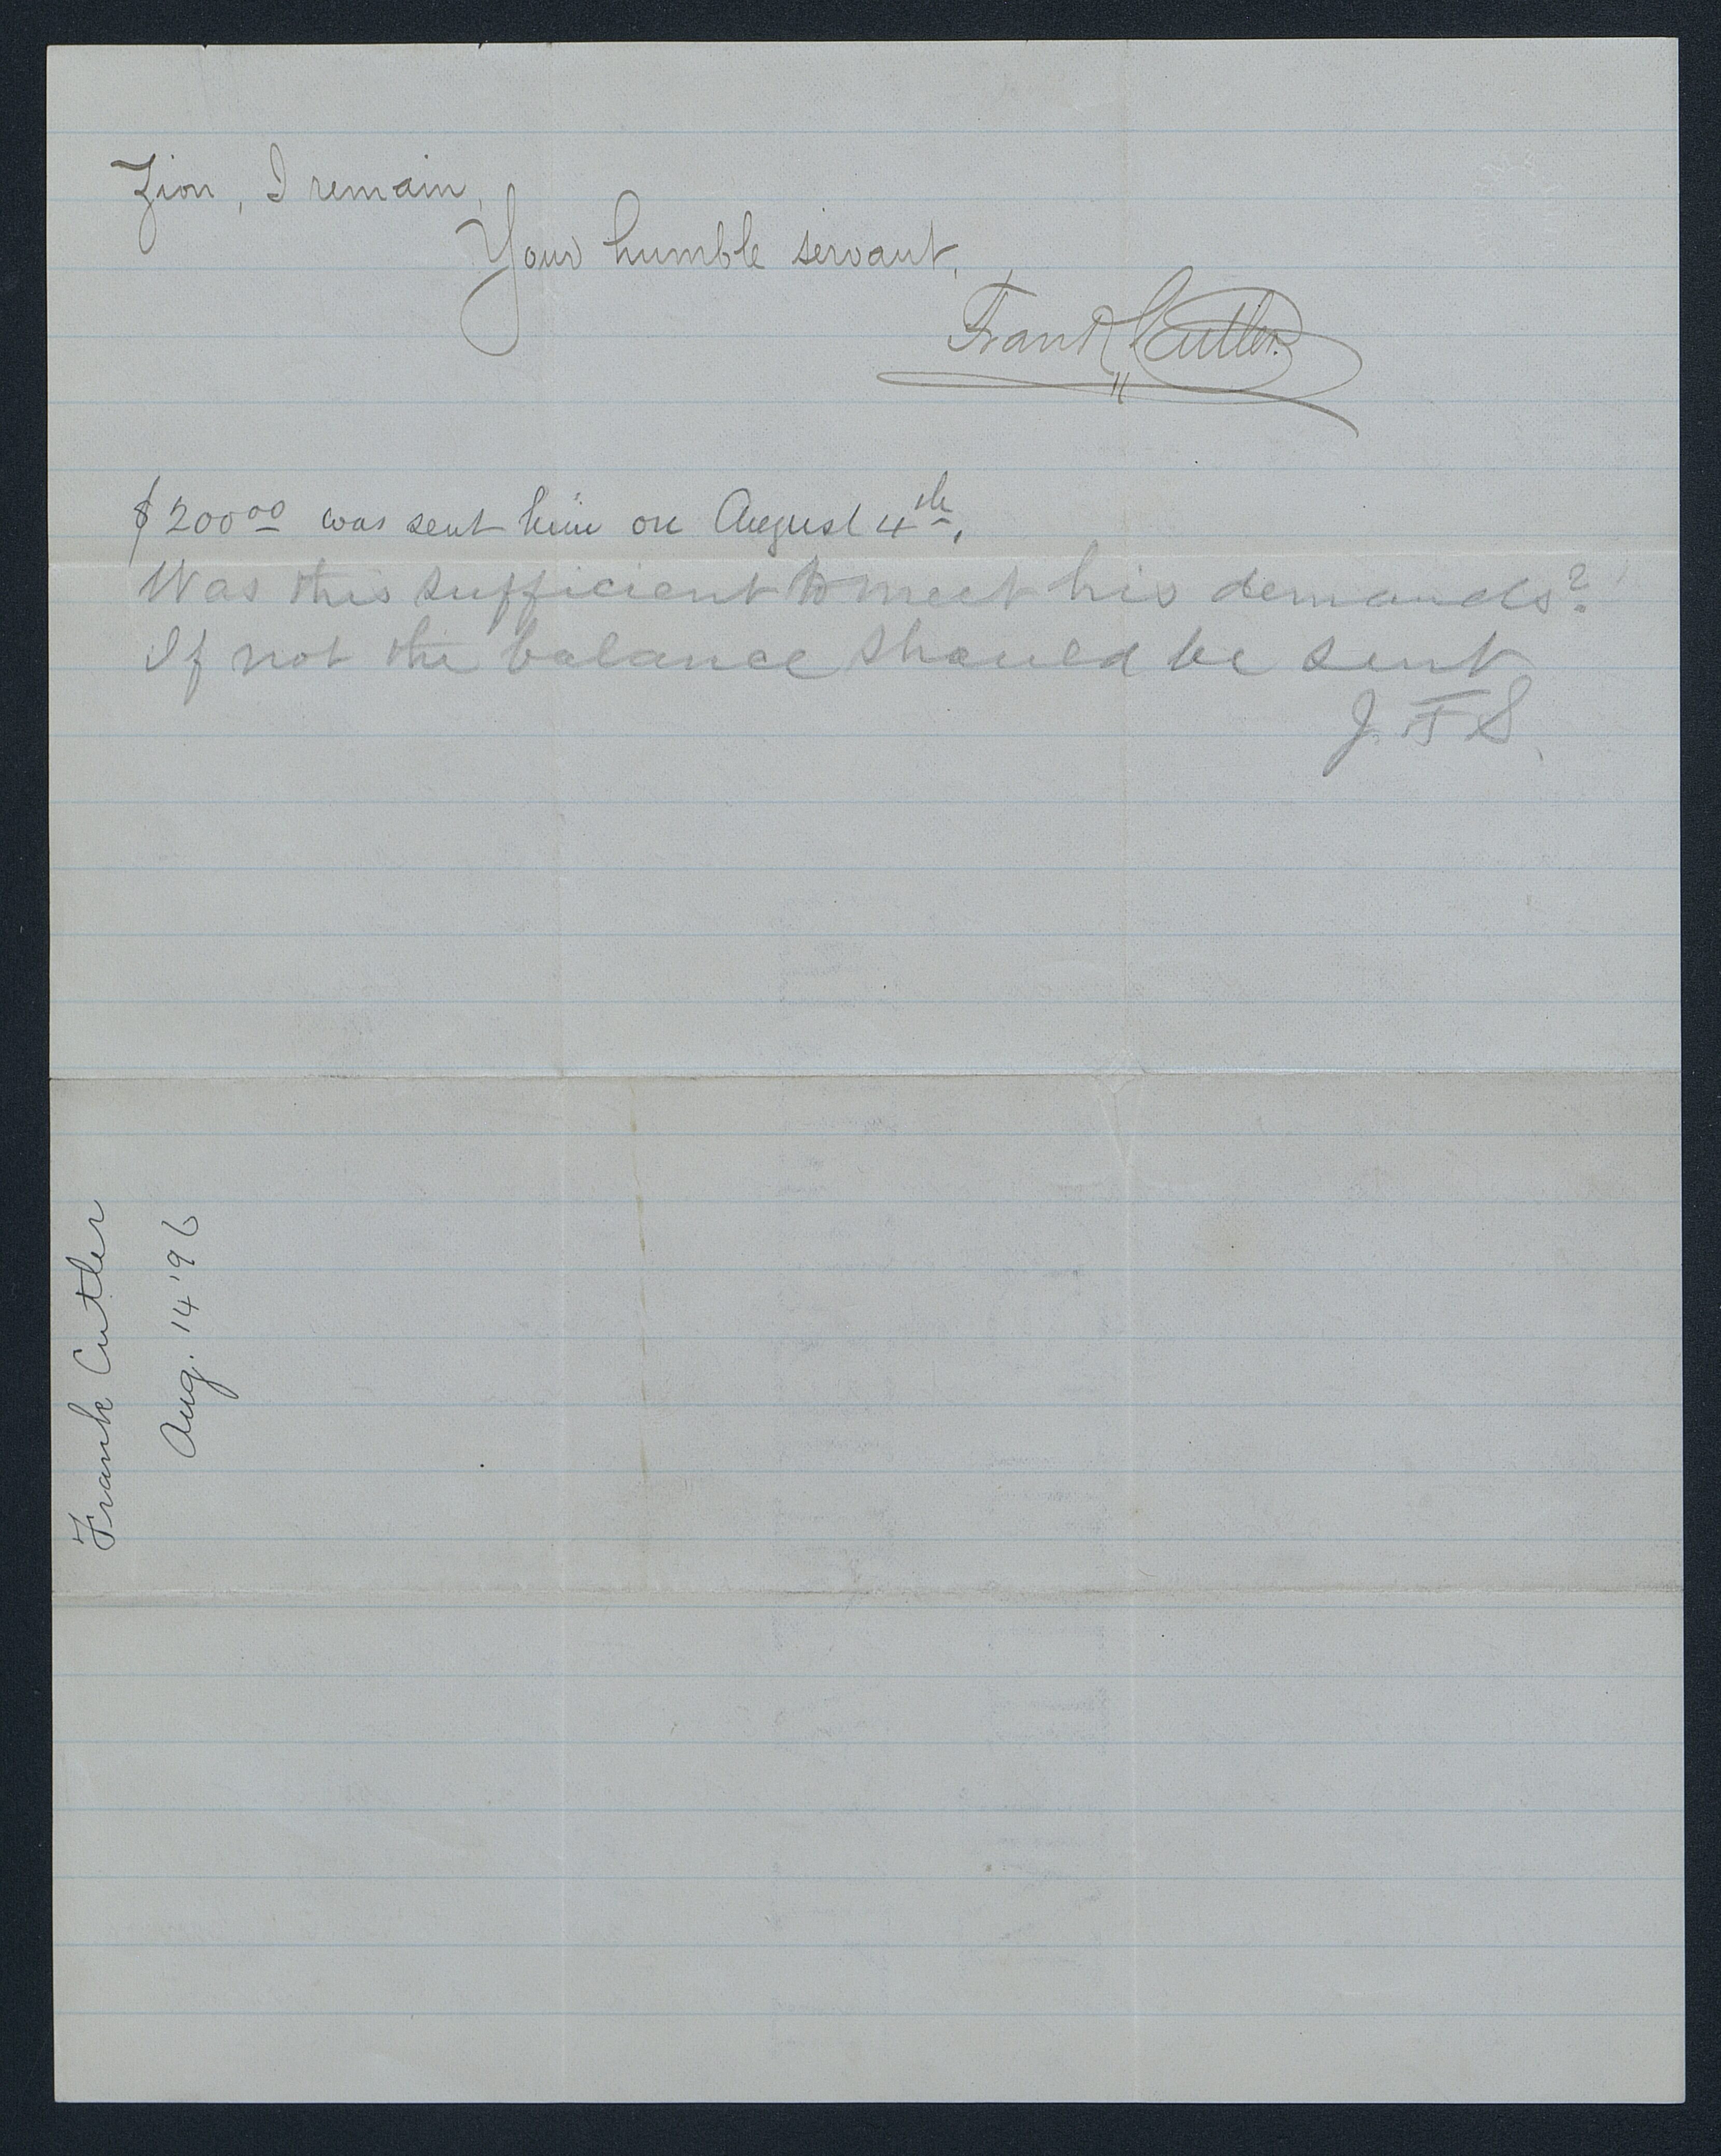 Zion, I remain,
Your humble servant,
Frank Cutler.
$200 00 was sent him on August 4th.
Was this sufficient to meet his demands?
If not the balance should be sent
J. F. S.
Frank Cutler
Aug. 14 '96